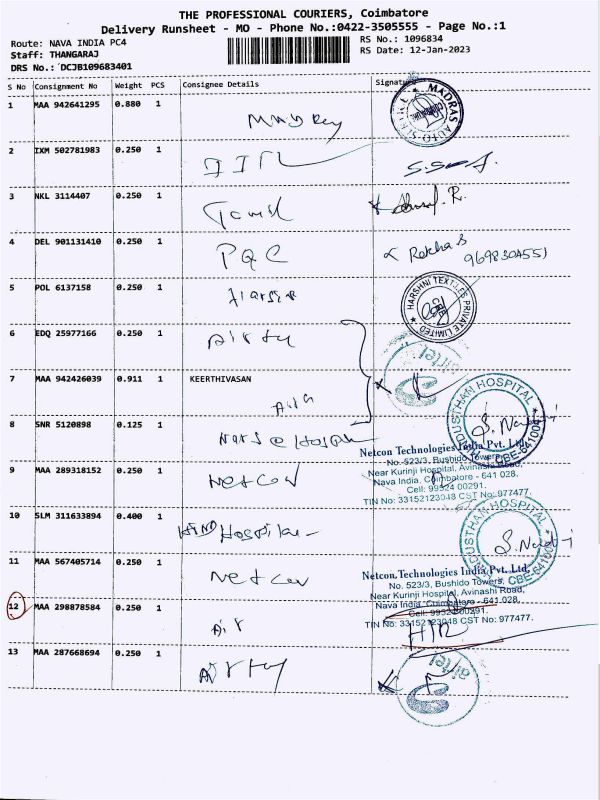 THE PROFESSIONAL COURIERS, Coimbatore
Delivery Runsheet - MO - Phone No.:0422-3505555 - Page No.:1
Route: NAVA INDIA PC4
RS No.: 1096834
Staff: THANGARAJ
RS Date: 12-Jan-2023
DRS No.: DCJB109683401
S No Consignment No Weight PCS Consignee Details Signature
1 MAA 942641295 0.880 1
MADRAS AUTO SERVICE
2 IXM 502781983 0.250 1
3 NKL 3114407 0.250 1 Tamil
4 DEL 901131410 0.250 1 PQC Rekha S
9698304551
5 POL 6137158 0.250 1 Harshni
HARSHNI TEXTILES PRIVATE LIMITED
6 EDQ 25977166 0.250 1 Airtel
airtel
7 MAA 942426039 0.911 1 KEERTHIVASAN
HINDUSTHAN HOSPITAL
CBE-641004
8 SNR 5120898 0.125 1
Netcon Technologies India Pvt. Ltd.
No. 523/3, Bushido Towers,
Near Kurinji Hospital, Avinashi Road,
Nava India, Coimbatore - 641 028.
Cell: 99524 00291.
TIN No: 33152123048 CST No: 977477.
9 MAA 289318152 0.250 1 Netcon
10 SLM 311633894 0.400 1 Hind Hospital
HINDUSTHAN HOSPITAL
CBE-641004
11 MAA 567405714 0.250 1 Netcon
Netcon Technologies India Pvt. Ltd.
No. 523/3, Bushido Towers,
Near Kurinji Hospital, Avinashi Road,
Nava India, Coimbatore - 641 028.
Cell: 99524 00291.
TIN No: 33152123048 CST No: 977477.
12 MAA 298878584 0.250 1 Air
13 MAA 287668694 0.250 1 Airtel
airtel